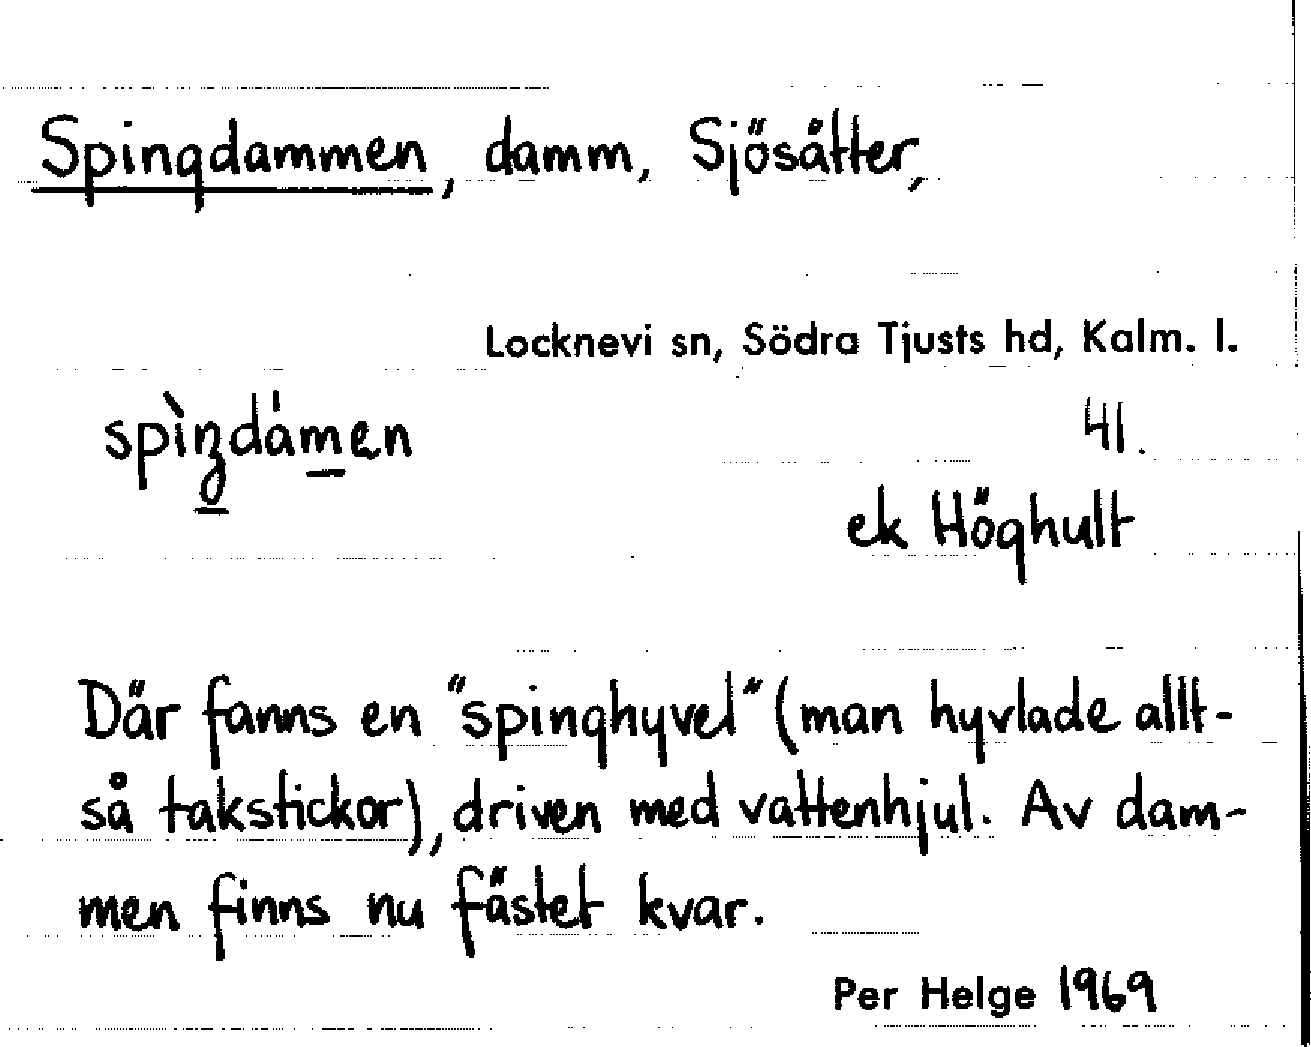 Spingdammen, damm, Sjösätter,
Locknevi sn, Södra Tjusts hd, Kalm. l.
41.
ek Höghult
Där fanns en "spinghyvel" (man hyvlade allt-
så takstickor), driven med vattenhjul. Av dam-
men finns nu fästet kvar.
Per Helge 1969